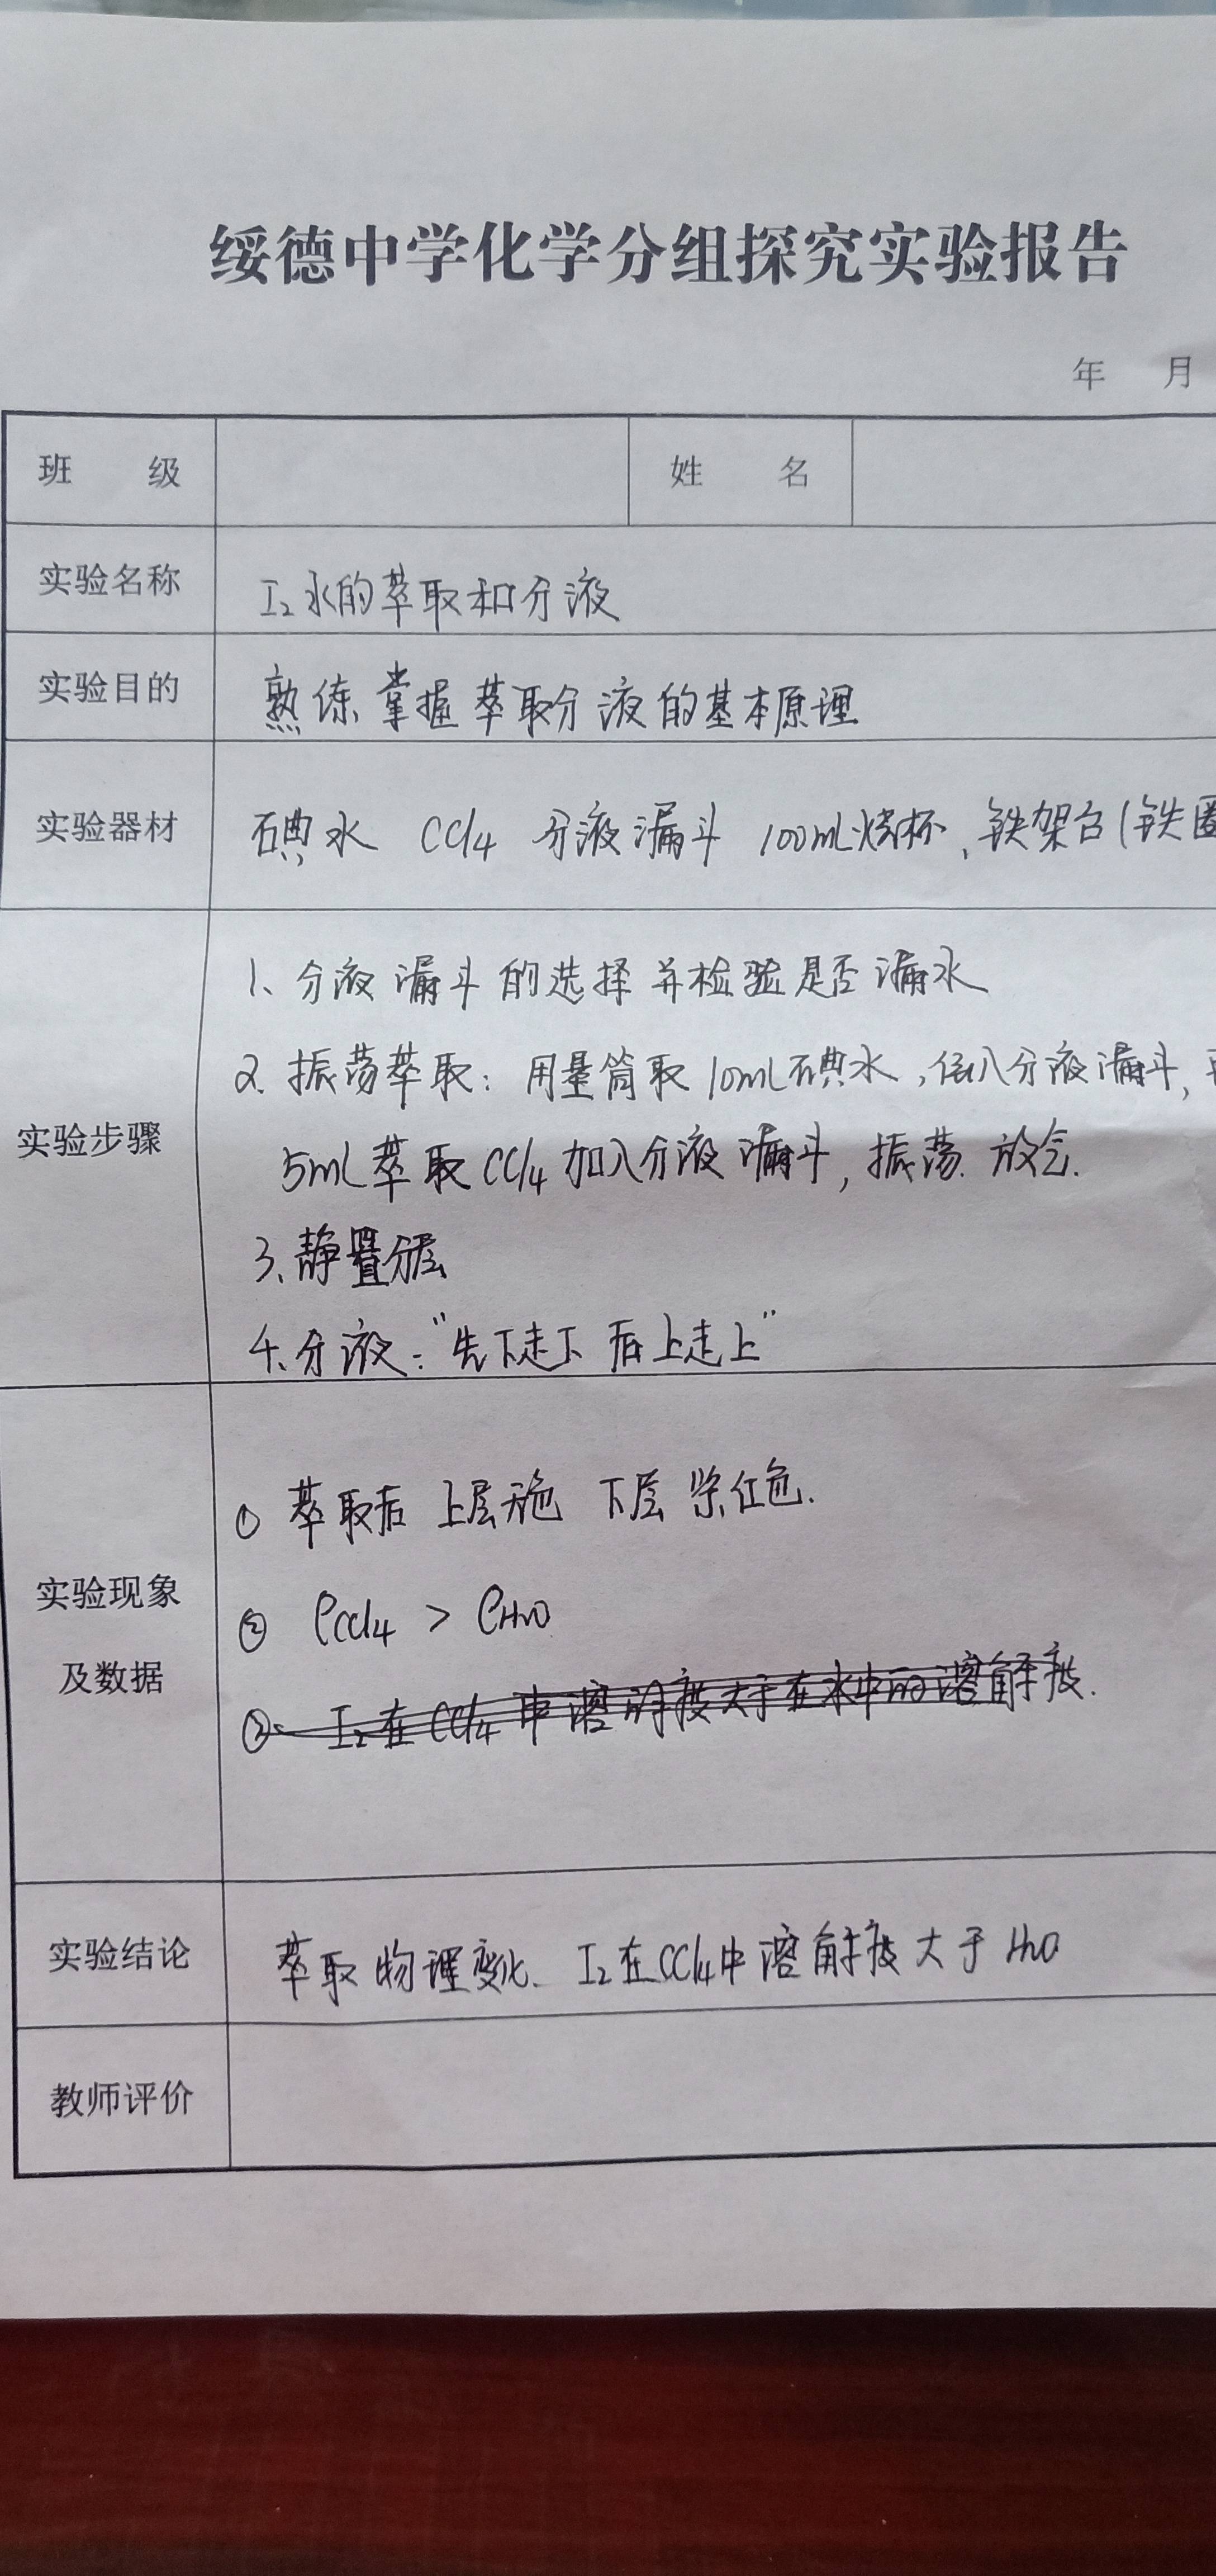 绥德中学化学分组探究实验报告
年 月
班 级 姓 名
实验名称 I₂水的萃取和分液
实验目的 熟练掌握萃取分液的基本原理
实验器材 碘水 CCl₄ 分液漏斗 100mL烧杯,铁架台(铁圈
实验步骤
1、分液漏斗的选择并检验是否漏水
2. 振荡萃取:用量筒取10mL碘水,倒入分液漏斗,
5mL萃取CCl₄加入分液漏斗,振荡.放气.
3、静置分层
4、分液:"先下走下 后上走上"
实验现象
及数据
① 萃取后 上层无色 下层 紫红色.
② ρCCl₄ > ρH₂O
③ I₂在CCl₄中溶解度大于在水中的溶解度.
实验结论 萃取物理变化. I₂在CCl₄中溶解度大于H₂O
教师评价